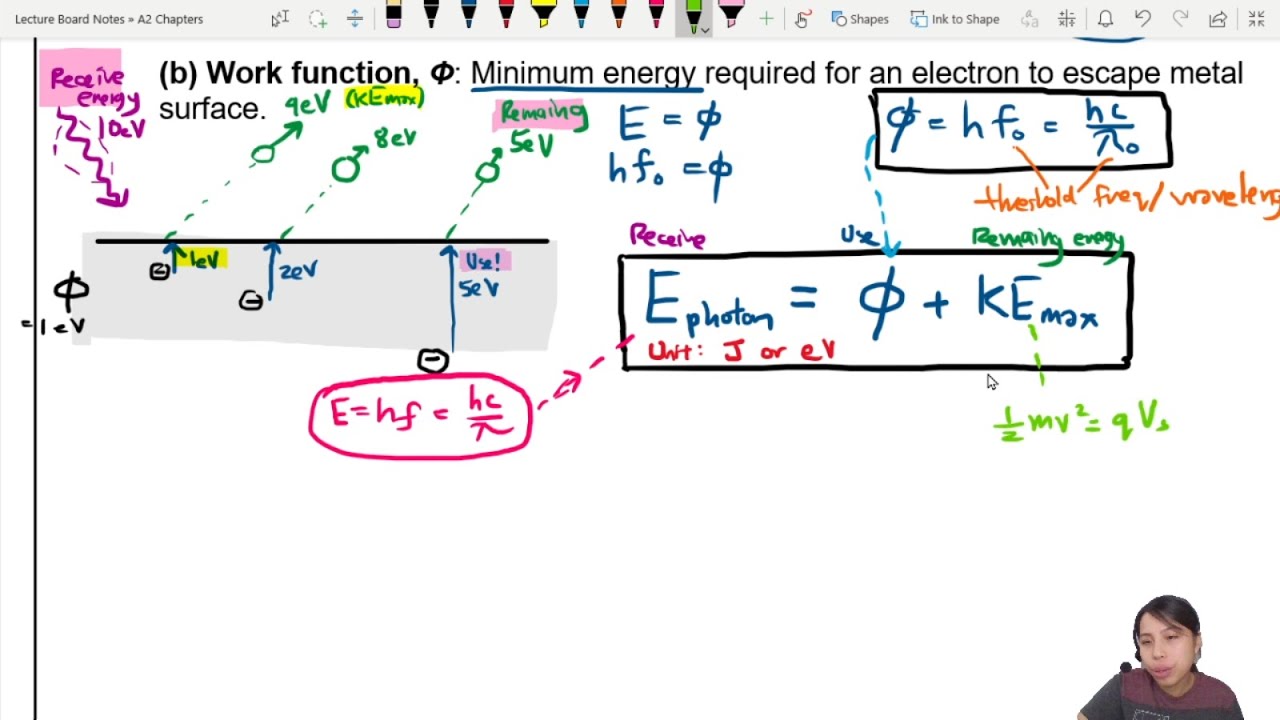 Lecture Board Notes » A2 Chapters
Shapes
Ink to Shape
Receive
energy
10eV
(b) Work function, Φ: Minimum energy required for an electron to escape metal
surface.
9eV (KEmax)
8eV
Remaing
5eV
E = ϕ
hf₀ = ϕ
ϕ = hf₀ = hc/λ₀
threshold freq/waveleng
1eV
2eV
Use!
5eV
Φ
= 1eV
Receive
Use
Remaing energy
E photon = ϕ + KE max
Unit: J or eV
E = hf = hc/λ
½mv² = qVs